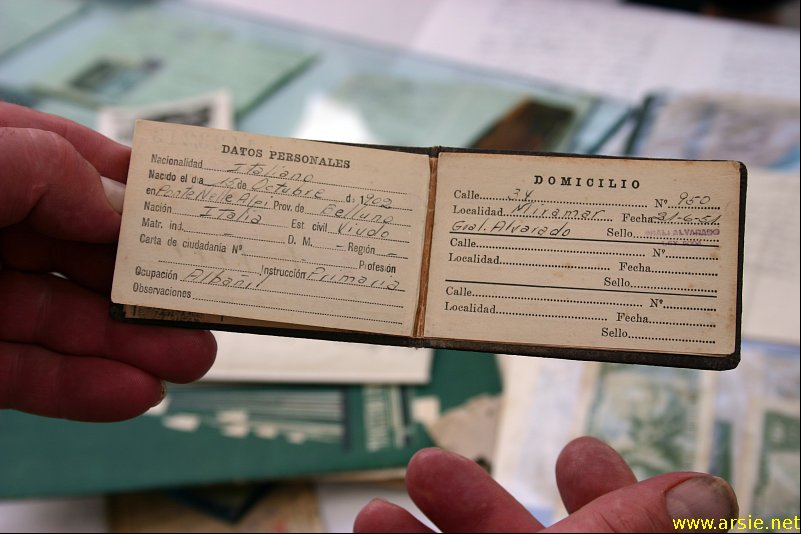 DATOS PERSONALES
Nacionalidad Italiano
Nacido el dia de Octubre d 1902
en PonteNelle Alpi Prov. de Belluno
Nación Italia Est civil Viudo
Matr. ind. – D. M. – Región –
Carta de ciudadanía Nº
Profesión
Ocupación Albañil Instrucción Primaria
Observaciones
DOMICILIO
Calle 34 Nº 950
Localidad Miramar Fecha 21-6-51
Gral. Alvarado Sello GRAL. ALVARADO
Calle Nº
Localidad Fecha
Sello
Calle Nº
Localidad Fecha
Sello
www.arsie.net